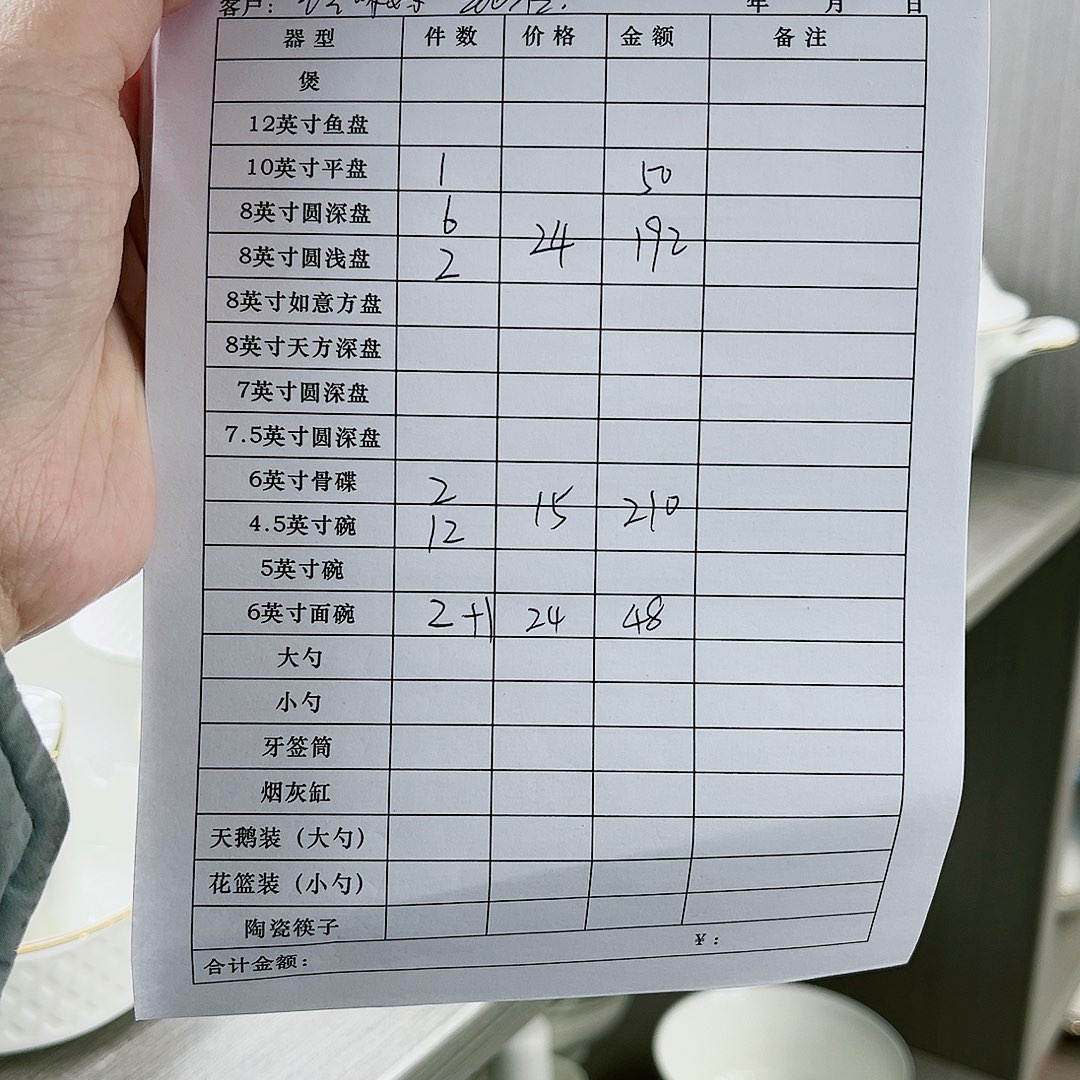 客户： 年 月 日
器型 件数 价格 金额 备注
煲
12英寸鱼盘
10英寸平盘 1 50
8英寸圆深盘 6 24 192
8英寸圆浅盘 2
8英寸如意方盘
8英寸天方深盘
7英寸圆深盘
7.5英寸圆深盘
6英寸骨碟 2 15 210
4.5英寸碗 12
5英寸碗
6英寸面碗 2+1 24 48
大勺
小勺
牙签筒
烟灰缸
天鹅装（大勺）
花篮装（小勺）
陶瓷筷子
合计金额： ¥：